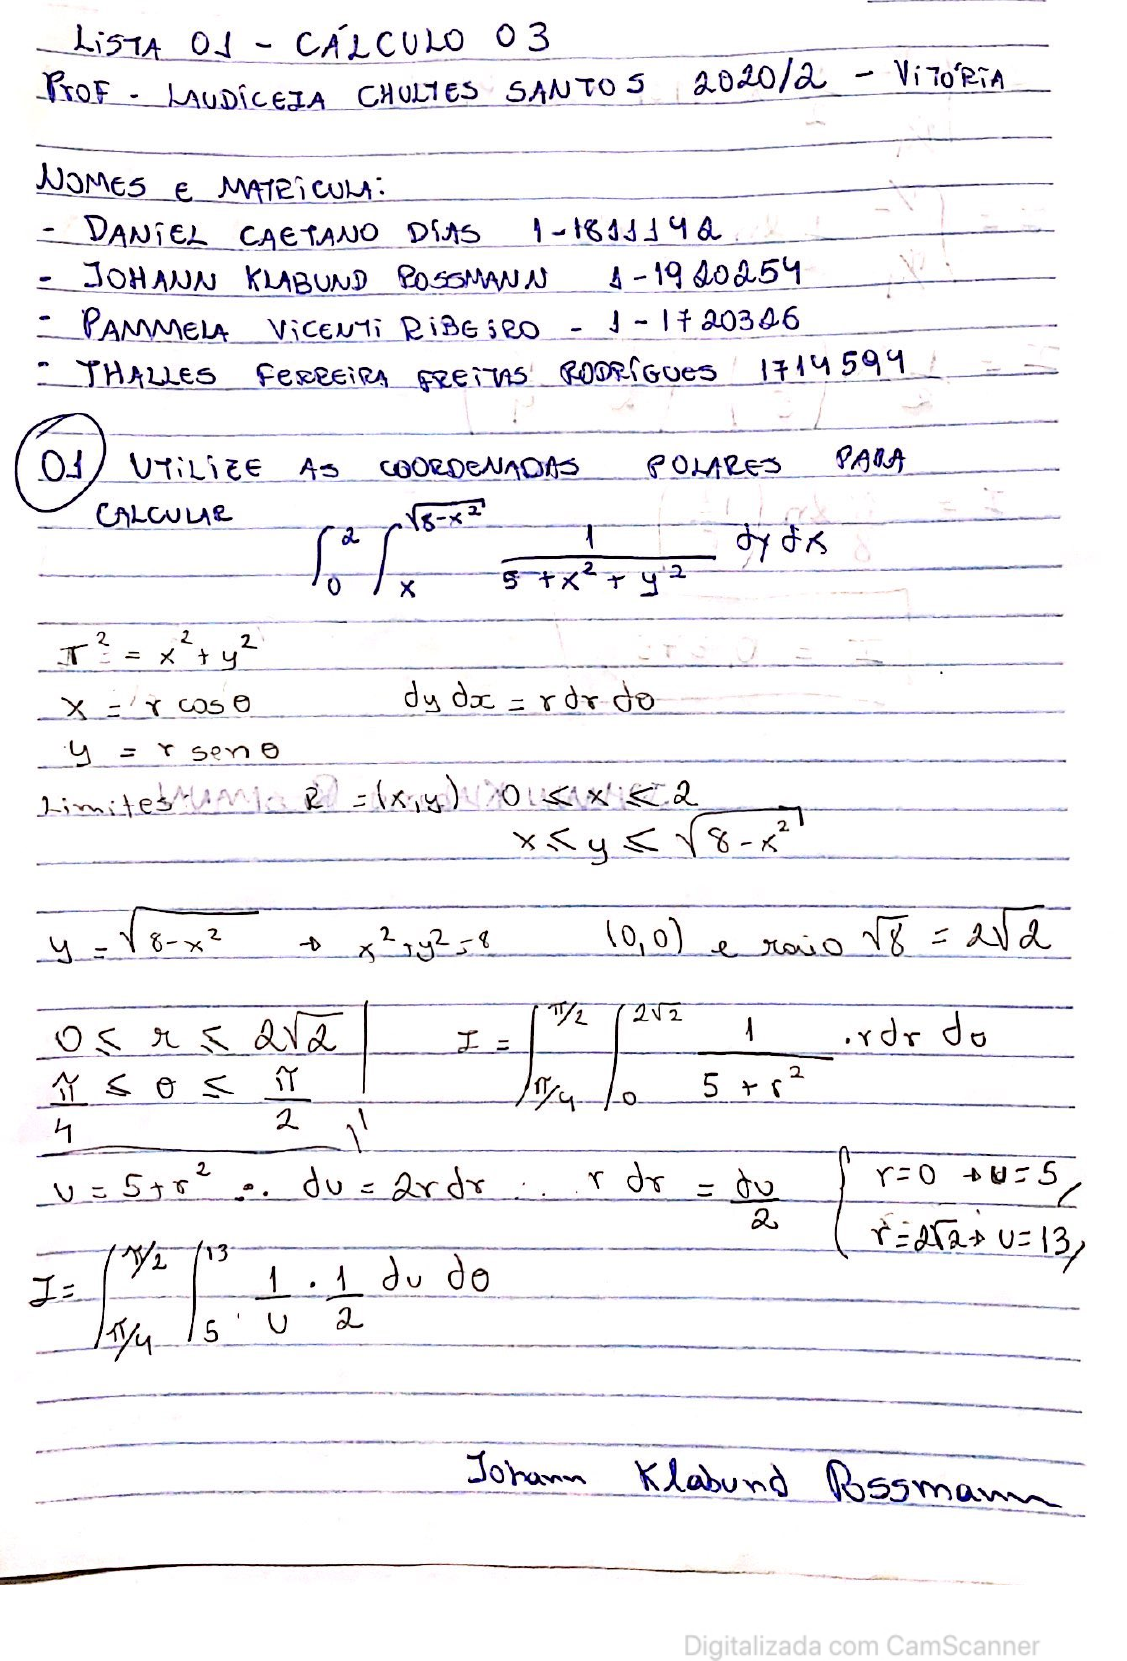 LISTA 01 - CÁLCULO 03
PROF - LAUDICEIA CHULTES SANTOS 2020/2 - VITÓRIA
NOMES E MATRICULA:
- DANIEL CAETANO DIAS 1-1811142
- JOHANN KLABUND POSSMANN 1-1920254
- PAMMELA VICENTI RIBEIRO - 1-1720326
- THALLES FERREIRA FREITAS RODRIGUES 1714594
01 UTILIZE AS COORDENADAS POLARES PARA
CALCULAR
∫_0^2 ∫_x^{√(8-x²)} 1/(5+x²+y²) dy dx
r² = x² + y²
x = r cos θ dy dx = r dr dθ
y = r sen θ
Limites: R = (x,y) 0 ≤ x ≤ 2
x ≤ y ≤ √(8-x²)
y = √(8-x²) → x²+y²=8 (0,0) e raio √8 = 2√2
0 ≤ r ≤ 2√2 I = ∫_{π/4}^{π/2} ∫_0^{2√2} 1/(5+r²) . r dr dθ
π/4 ≤ θ ≤ π/2
u = 5+r² ∴ du = 2r dr ∴ r dr = du/2 { r=0 → u=5,
r=2√2 → u=13,
I = ∫_{π/4}^{π/2} ∫_5^{13} 1/u . 1/2 du dθ
Johann Klabund Possmann
Digitalizada com CamScanner